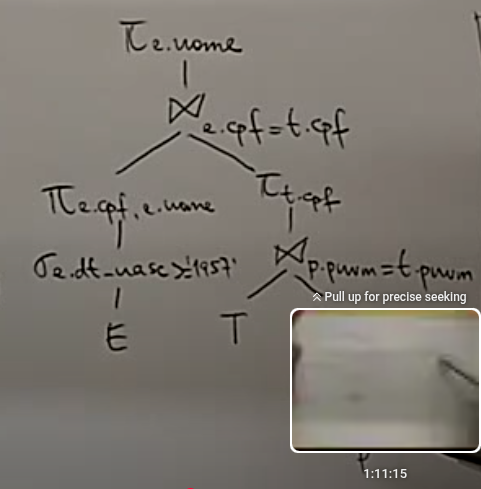 π e.nome
⋈ e.cpf = t.cpf
π e.cpf, e.nome
π t.cpf
σ e.dt-nasc ≥ '1957'
⋈ p.pnum = t.pnum
E
T
Pull up for precise seeking
1:11:15